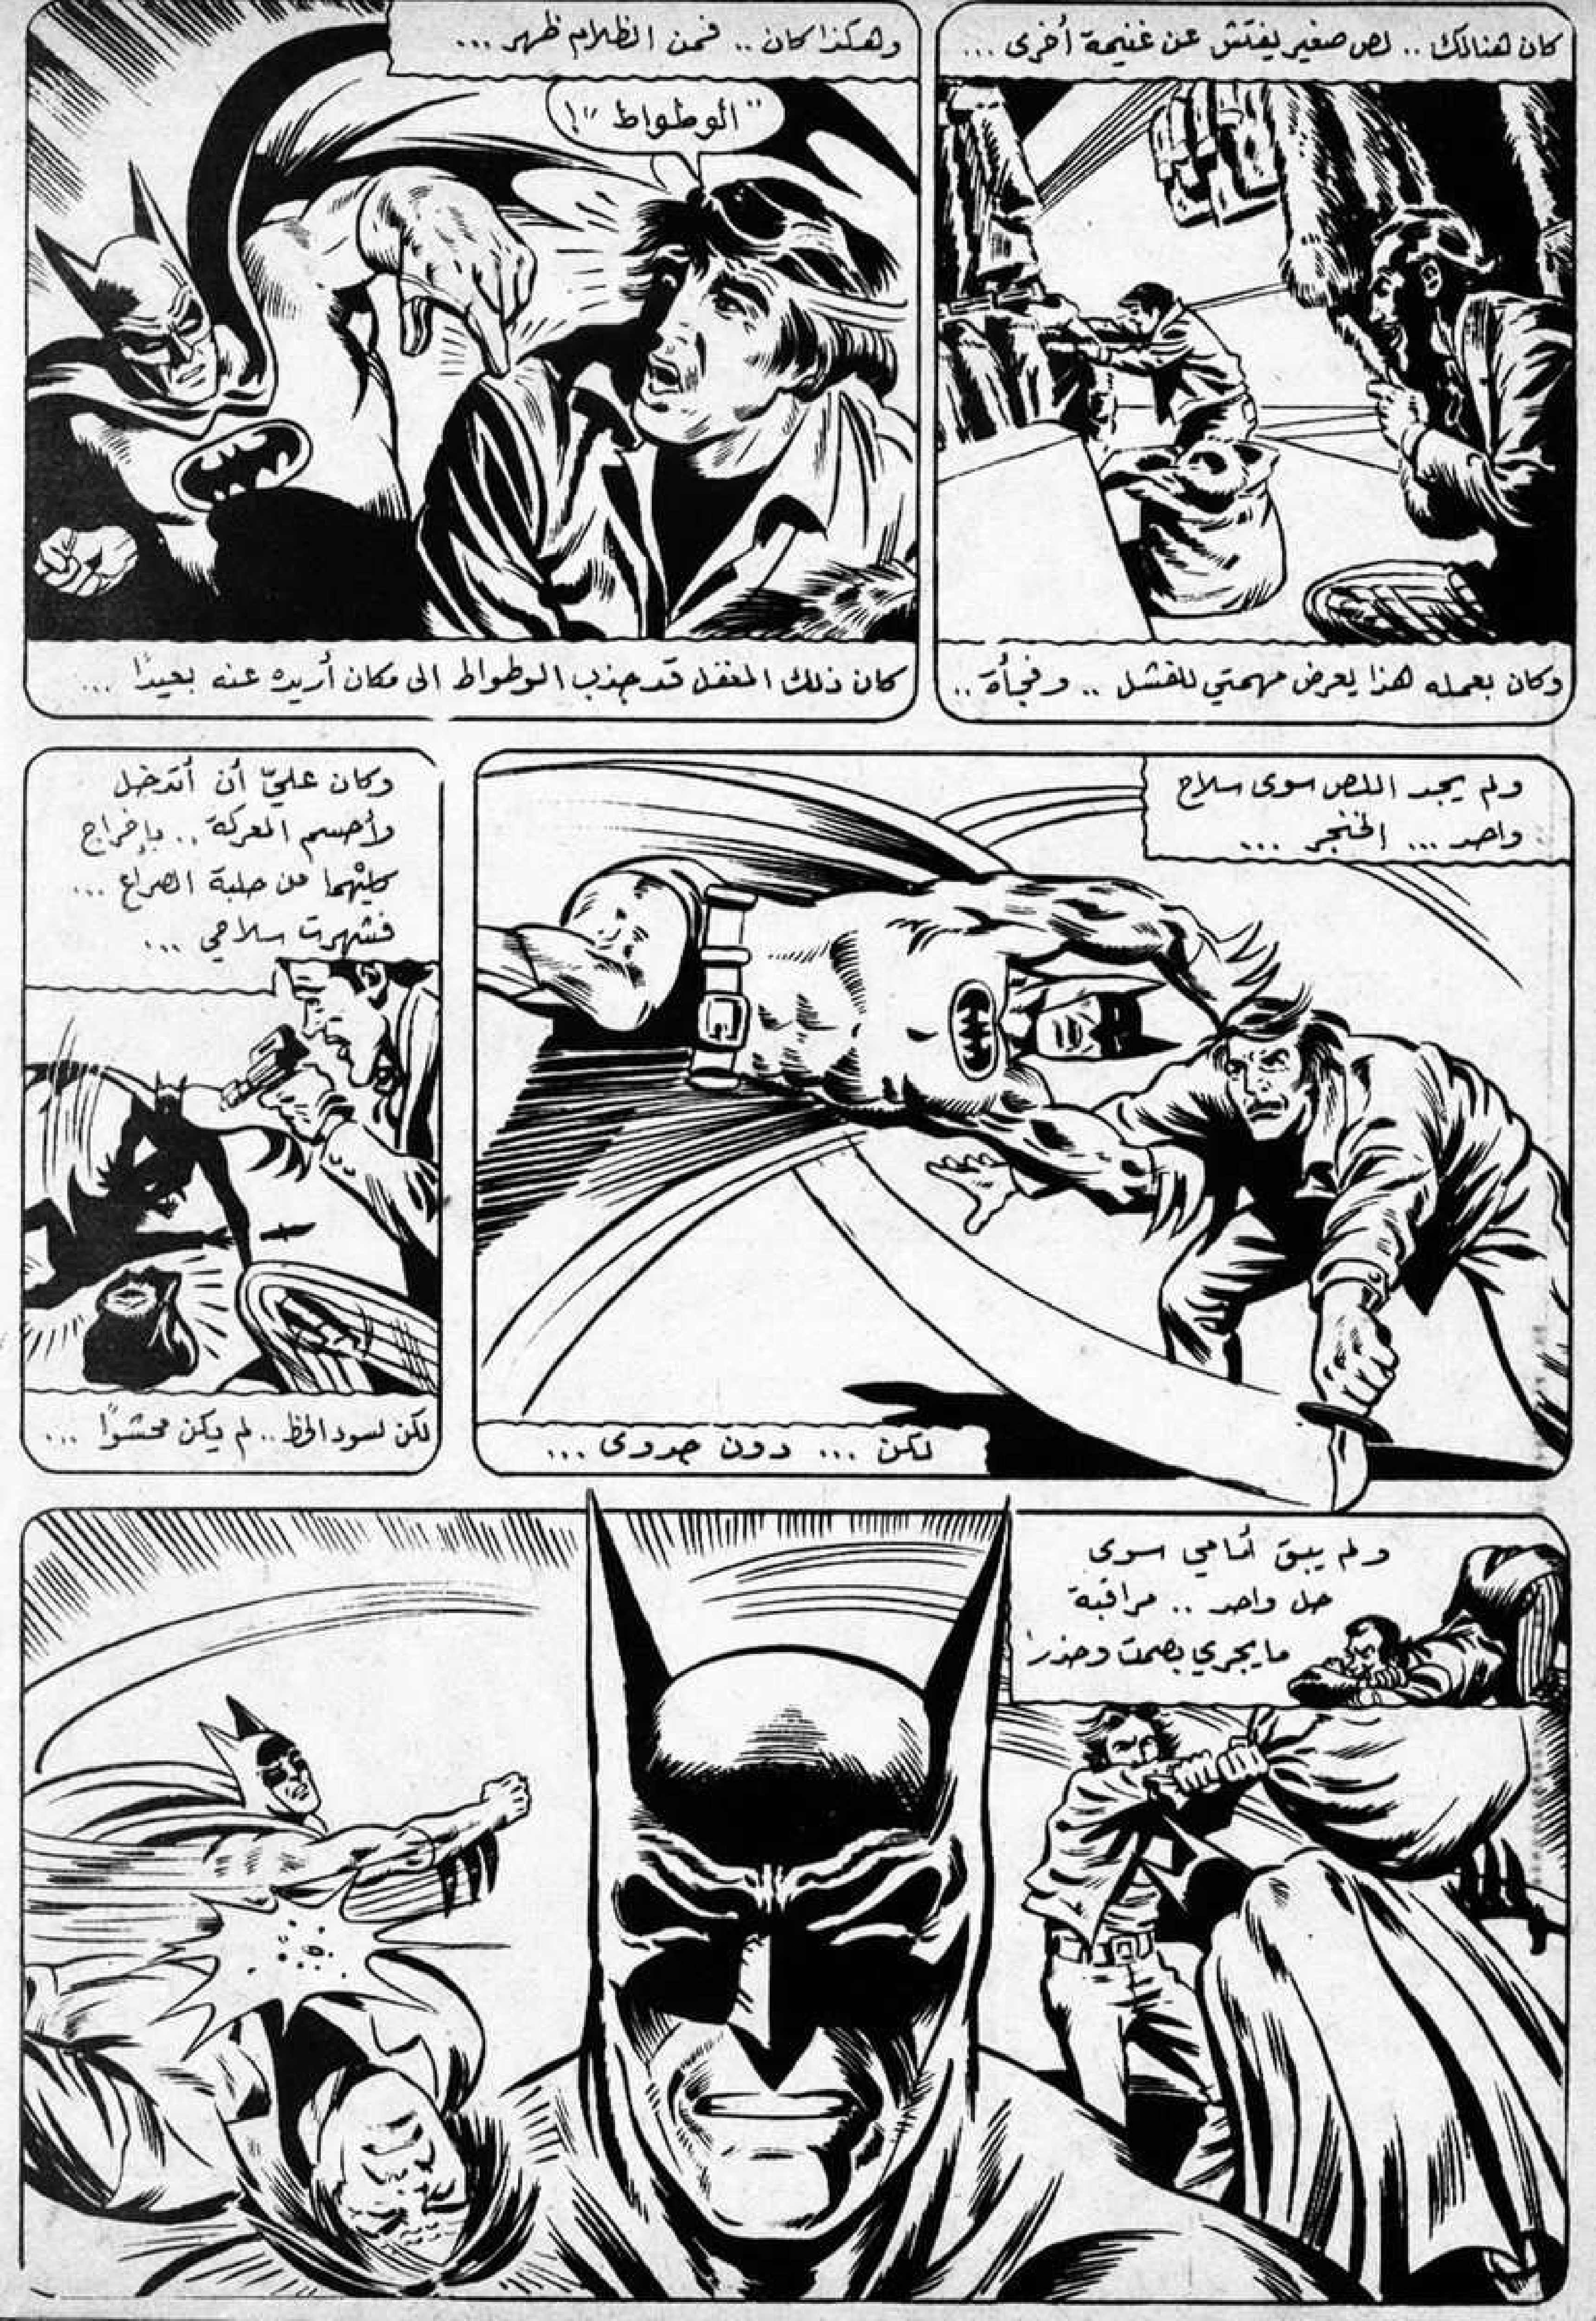 كان هنالك .. لص صغير يفتش عن غنيمة أخرى ...
وكان بعمله هذا يعرض مهمتي للفشل .. وفجأة ..
وهكذا كان .. فمن الظلام ظهر ...
"الوطواط"!
كان ذلك المغفل قد جذب الوطواط الى مكان أريده عنه بعيدًا ...
ولم يجد اللص سوى سلاح
واحد ... الخنجر ...
لكن ... دون جدوى ...
وكان عليّ أن أتدخل
وأحسم المعركة .. بإخراج
كليْهما من حلبة الصراع ...
فشهرت سلاحي ...
لكن لسود الحظ .. لم يكن محشوًا ...
ولم يبق أمامي سوى
حل واحد .. مراقبة
مايجري بصمت وحذر